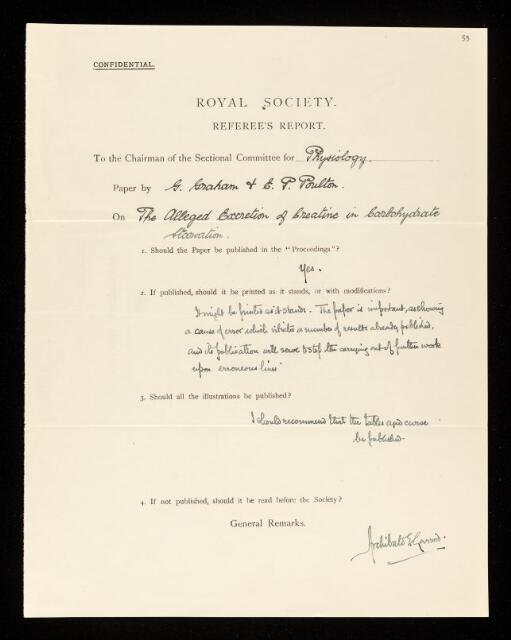 53
CONFIDENTIAL.
ROYAL SOCIETY.
REFEREE'S REPORT.
To the Chairman of the Sectional Committee for Physiology.
Paper by G. Graham & E. P. Poulton.
On The Alleged Excretion of Creatine in Carbohydrate
Starvation.
1. Should the Paper be published in the "Proceedings"?
Yes.
2. If published, should it be printed as it stands, or with modifications?
It might be printed as it stands. The paper is important, as showing
a cause of error which vitiates a number of results already published,
and its publication will serve to stop the carrying out of further work
upon erroneous lines
3. Should all the illustrations be published?
I should recommend that the tables and curve
be published.
4. If not published, should it be read before the Society?
General Remarks.
Archibald E. Garrod.